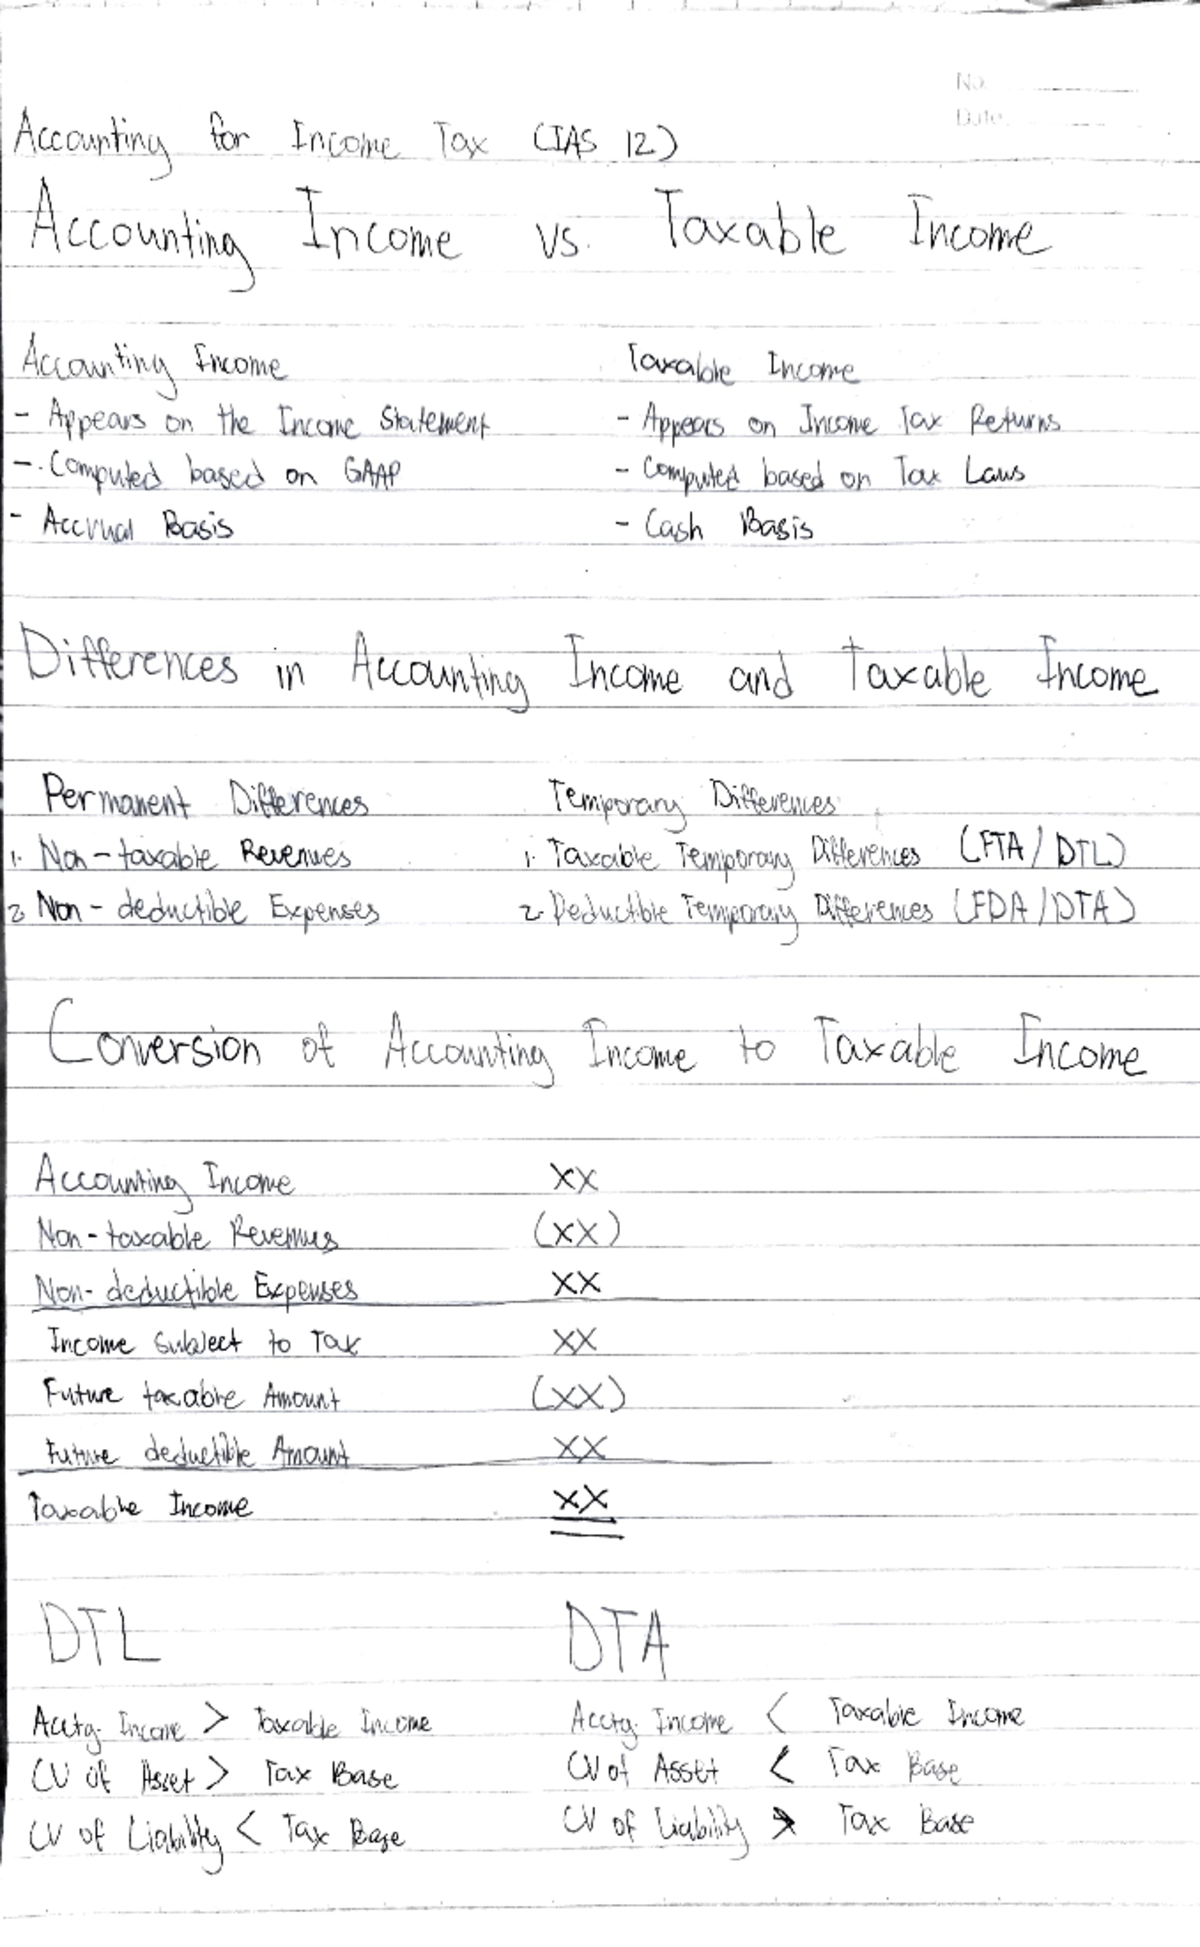 No.
Date:
Accounting for Income Tax (IAS 12)
Accounting Income vs. Taxable Income
Accounting Income Taxable Income
- Appears on the Income Statement - Appears on Income Tax Returns
- Computed based on GAAP - Computed based on Tax Laws
- Accrual Basis - Cash Basis
Differences in Accounting Income and Taxable Income
Permanent Differences Temporary Differences
1. Non-taxable Revenues 1. Taxable Temporary Differences (FTA/DTL)
2. Non-deductible Expenses 2. Deductible Temporary Differences (FDA/DTA)
Conversion of Accounting Income to Taxable Income
Accounting Income XX
Non-taxable Revenues (XX)
Non-deductible Expenses XX
Income Subject to Tax XX
Future taxable Amount (XX)
Future deductible Amount XX
Taxable Income XX
DTL DTA
Acctg. Income > Taxable Income Acctg. Income < Taxable Income
CV of Asset > Tax Base CV of Asset < Tax Base
CV of Liability < Tax Base CV of Liability > Tax Base